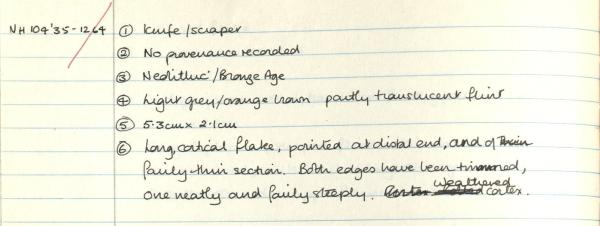 NH 104'35-1264 ① Knife/scraper
② No provenance recorded
③ Neolithic/Bronze Age
④ Light grey/orange brown partly translucent flint
⑤ 5.3cm x 2.1cm
⑥ Long, cortical flake, pointed at distal end, and of
fairly thin section. Both edges have been trimmed,
one neatly and fairly steeply. Weathered cortex.